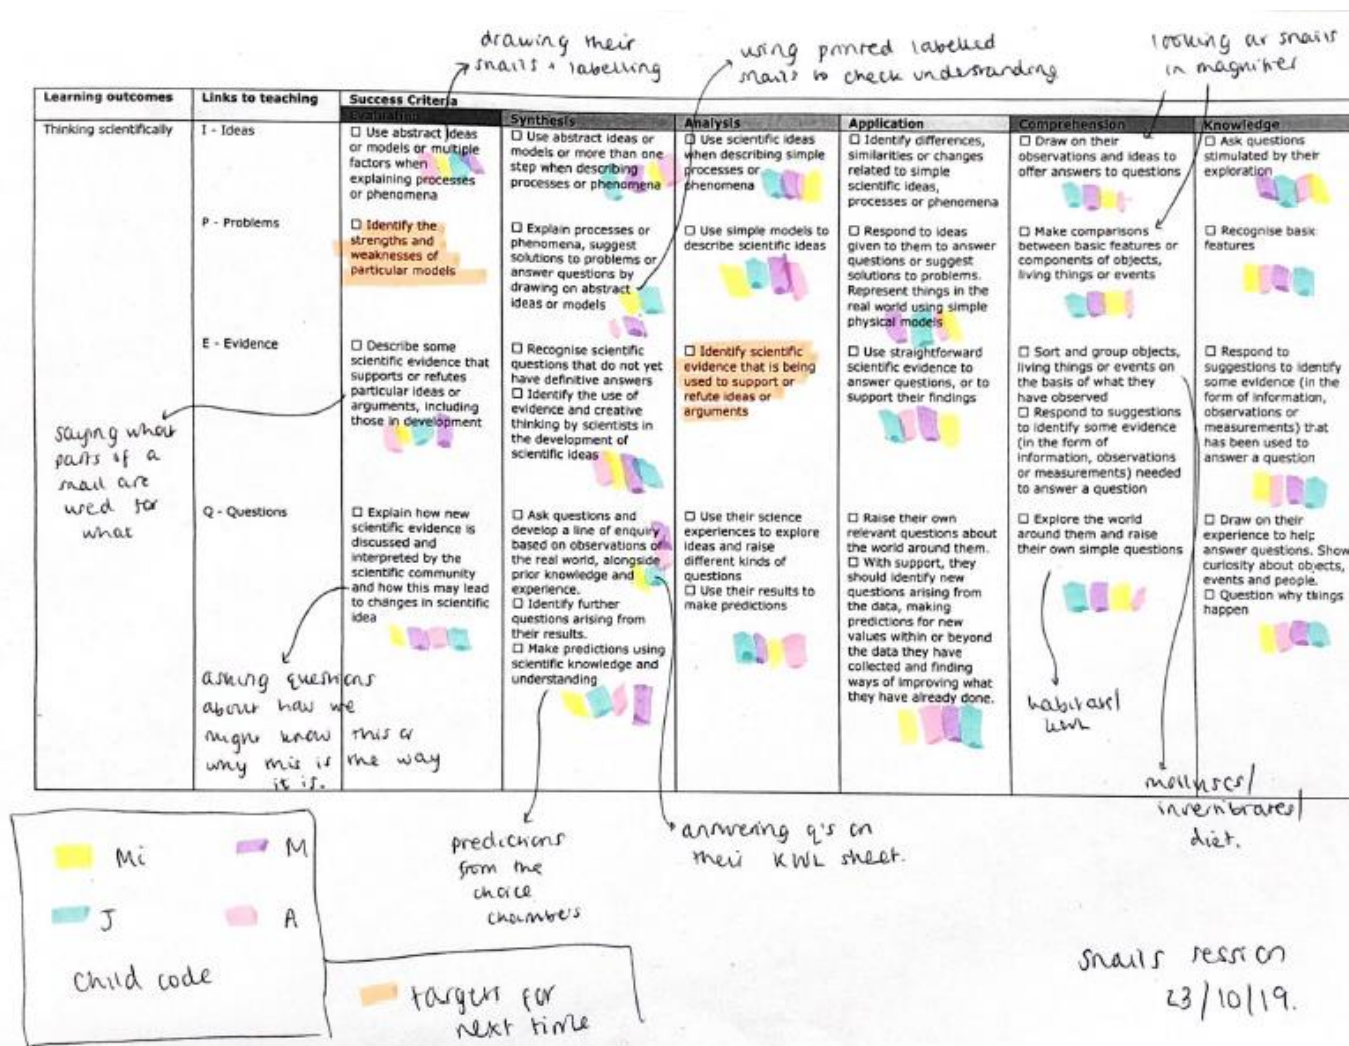 drawing their
snails + labelling
using printed labelled
snails to check understanding
looking at snails
in magnifier
Learning outcomes
Links to teaching
Success Criteria
Evaluation
Synthesis
Analysis
Application
Comprehension
Knowledge
Thinking scientifically
I - Ideas
☐ Use abstract ideas
or models or multiple
factors when
explaining processes
or phenomena
☐ Use abstract ideas or
models or more than one
step when describing
processes or phenomena
☐ Use scientific ideas
when describing simple
processes or
phenomena
☐ Identify differences,
similarities or changes
related to simple
scientific ideas,
processes or phenomena
☐ Draw on their
observations and ideas to
offer answers to questions
☐ Ask questions
stimulated by their
exploration
P - Problems
☐ Identify the
strengths and
weaknesses of
particular models
☐ Explain processes or
phenomena, suggest
solutions to problems or
answer questions by
drawing on abstract
ideas or models
☐ Use simple models to
describe scientific ideas
☐ Respond to ideas
given to them to answer
questions or suggest
solutions to problems.
Represent things in the
real world using simple
physical models
☐ Make comparisons
between basic features or
components of objects,
living things or events
☐ Recognise basic
features
E - Evidence
☐ Describe some
scientific evidence that
supports or refutes
particular ideas or
arguments, including
those in development
☐ Recognise scientific
questions that do not yet
have definitive answers
☐ Identify the use of
evidence and creative
thinking by scientists in
the development of
scientific ideas
☐ Identify scientific
evidence that is being
used to support or
refute ideas or
arguments
☐ Use straightforward
scientific evidence to
answer questions, or to
support their findings
☐ Sort and group objects,
living things or events on
the basis of what they
have observed
☐ Respond to suggestions
to identify some evidence
(in the form of
information, observations
or measurements) needed
to answer a question
☐ Respond to
suggestions to identify
some evidence (in the
form of information,
observations or
measurements) that
has been used to
answer a question
saying what
parts of a
snail are
used for
what
Q - Questions
☐ Explain how new
scientific evidence is
discussed and
interpreted by the
scientific community
and how this may lead
to changes in scientific
idea
☐ Ask questions and
develop a line of enquiry
based on observations of
the real world, alongside
prior knowledge and
experience.
☐ Identify further
questions arising from
their results.
☐ Make predictions using
scientific knowledge and
understanding
☐ Use their science
experiences to explore
ideas and raise
different kinds of
questions
☐ Use their results to
make predictions
☐ Raise their own
relevant questions about
the world around them.
☐ With support, they
should identify new
questions arising from
the data, making
predictions for new
values within or beyond
the data they have
collected and finding
ways of improving what
they have already done.
☐ Explore the world
around them and raise
their own simple questions
☐ Draw on their
experience to help
answer questions. Show
curiosity about objects,
events and people.
☐ Question why things
happen
asking questions
about how we
might know this or
why this is the way
it is.
habitats/
KWL
molluscs/
invertibrates/
diet.
predictions
from the
choice
chambers
answering q's on
their KWL sheet.
Mi
M
J
A
Child code
targets for
next time
snails session
23/10/19.